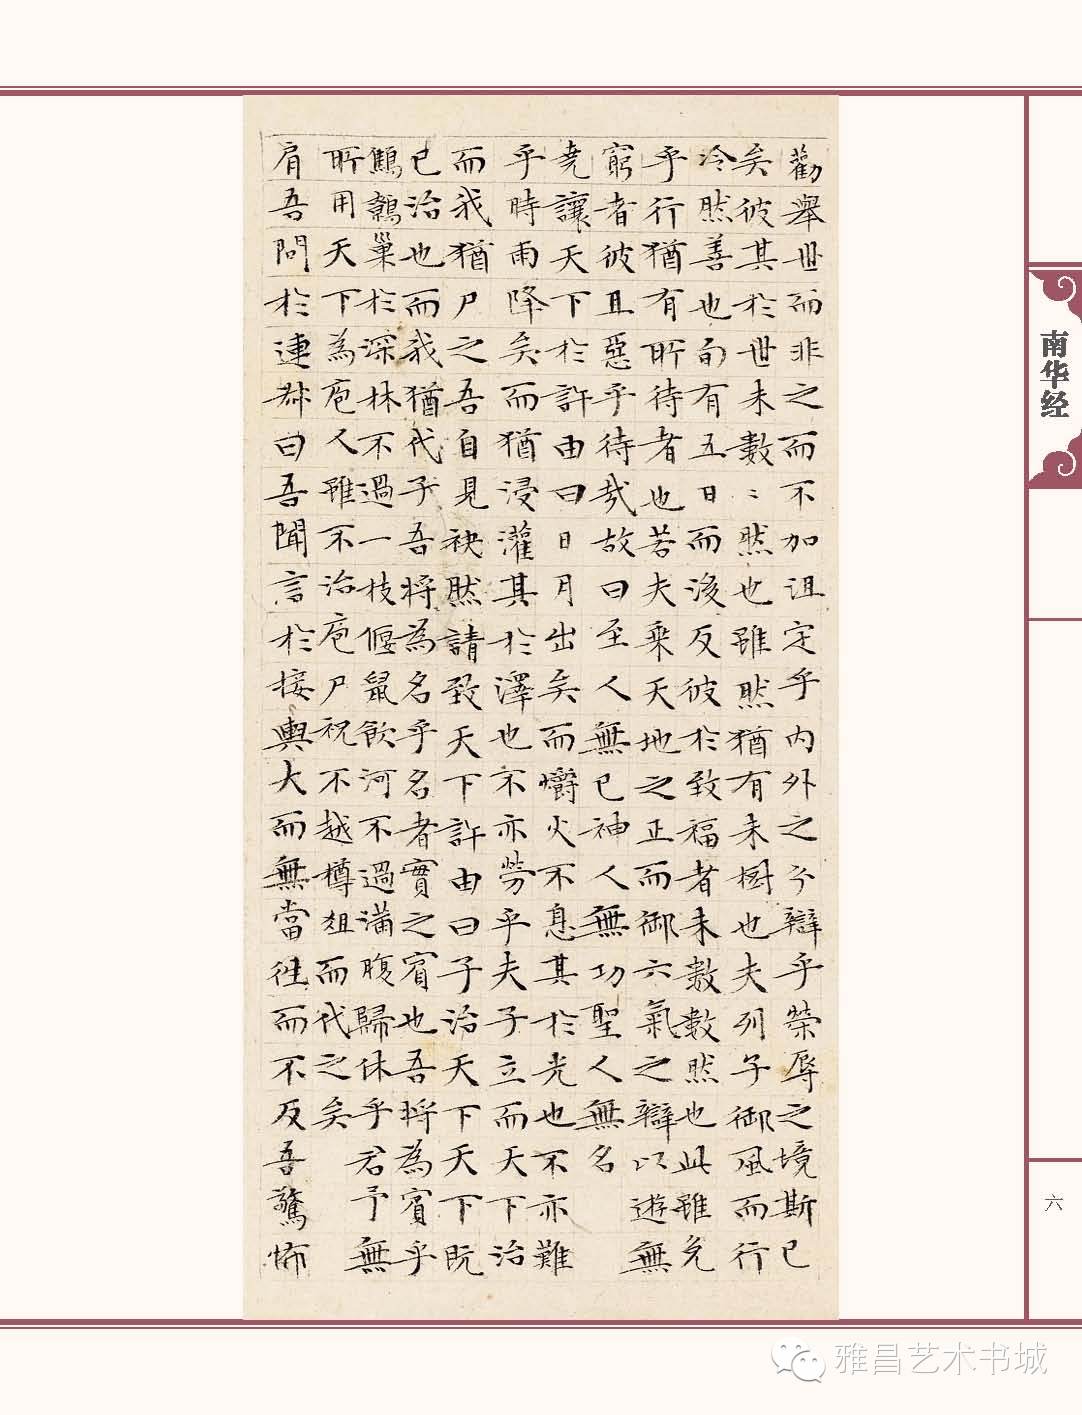 勸舉世而非之而不加沮定乎内外之分辯乎榮辱之境斯已
矣彼其於世未數〻然也雖然猶有未樹也夫列子御風而行
冷然善也旬有五日而後反彼於致福者未數數然也此雖免
乎行猶有所待者也若夫乘天地之正而御六氣之辯以遊無
窮者彼且惡乎待哉故曰至人無已神人無功聖人無名
堯讓天下於許由曰日月出矣而爝火不息其於光也不亦難
乎時雨降矣而猶浸灌其於澤也不亦勞乎夫子立而天下治
而我猶尸之吾自見缺然請致天下許由曰子治天下天下既
已治也而我猶代子吾將為名乎名者實之賓也吾將為賓乎
鷦鷯巢於深林不過一枝偃鼠飲河不過滿腹歸休乎君予無
所用天下為庖人雖不治庖尸祝不越樽俎而代之矣
肩吾問於連叔曰吾聞言於接輿大而無當往而不反吾驚怖
南华经
六
雅昌艺术书城